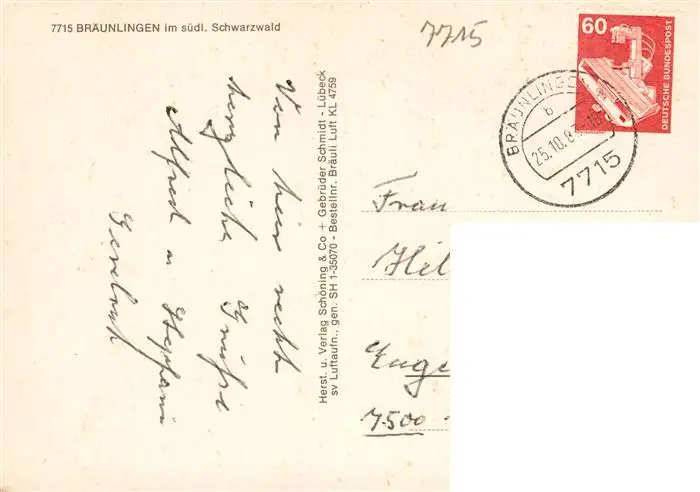 7715 BRÄUNLINGEN im südl. Schwarzwald
7715
60
DEUTSCHE BUNDESPOST
BRÄUNLINGE
b
25.10.8
-18
7715
Von hier recht
herzliche Grüße
Alfred u. Stephani
Herst. u. Verlag Schöning & Co + Gebrüder Schmidt - Lübeck
sv Luftaufn., gen. SH 1-35070 - Bestellnr. Bräuli Luft KL 4759
Frau
Hil
Enge
7500